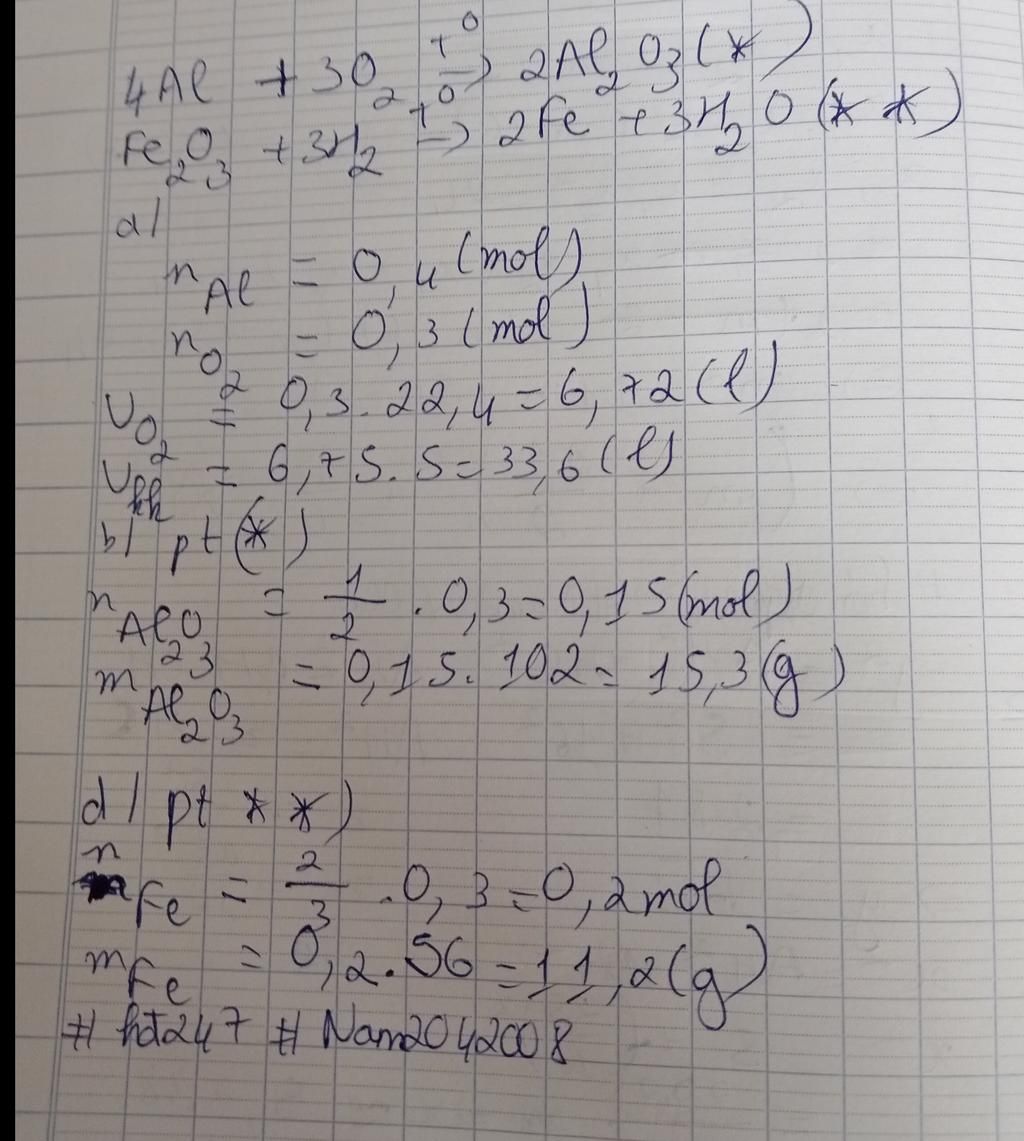 4Al + 3O₂ t⁰→ 2Al₂O₃(*)
Fe₂O₃ + 3H₂ t⁰→ 2Fe + 3H₂O(**)
a/
n Al = 0,4(mol)
n O₂ = 0,3(mol)
V O₂ = 0,3.22,4=6,72(l)
V kk = 6,75.5=33,6(l)
b/ pt(*)
n Al₂O₃ = 1/2 . 0,3=0,15(mol)
m Al₂O₃ = 0,15.102=15,3(g)
d/ pt **)
n Fe = 2/3 .0,3=0,2mol
m Fe = 0,2.56=11,2(g)
# hd247 # Nam2042008